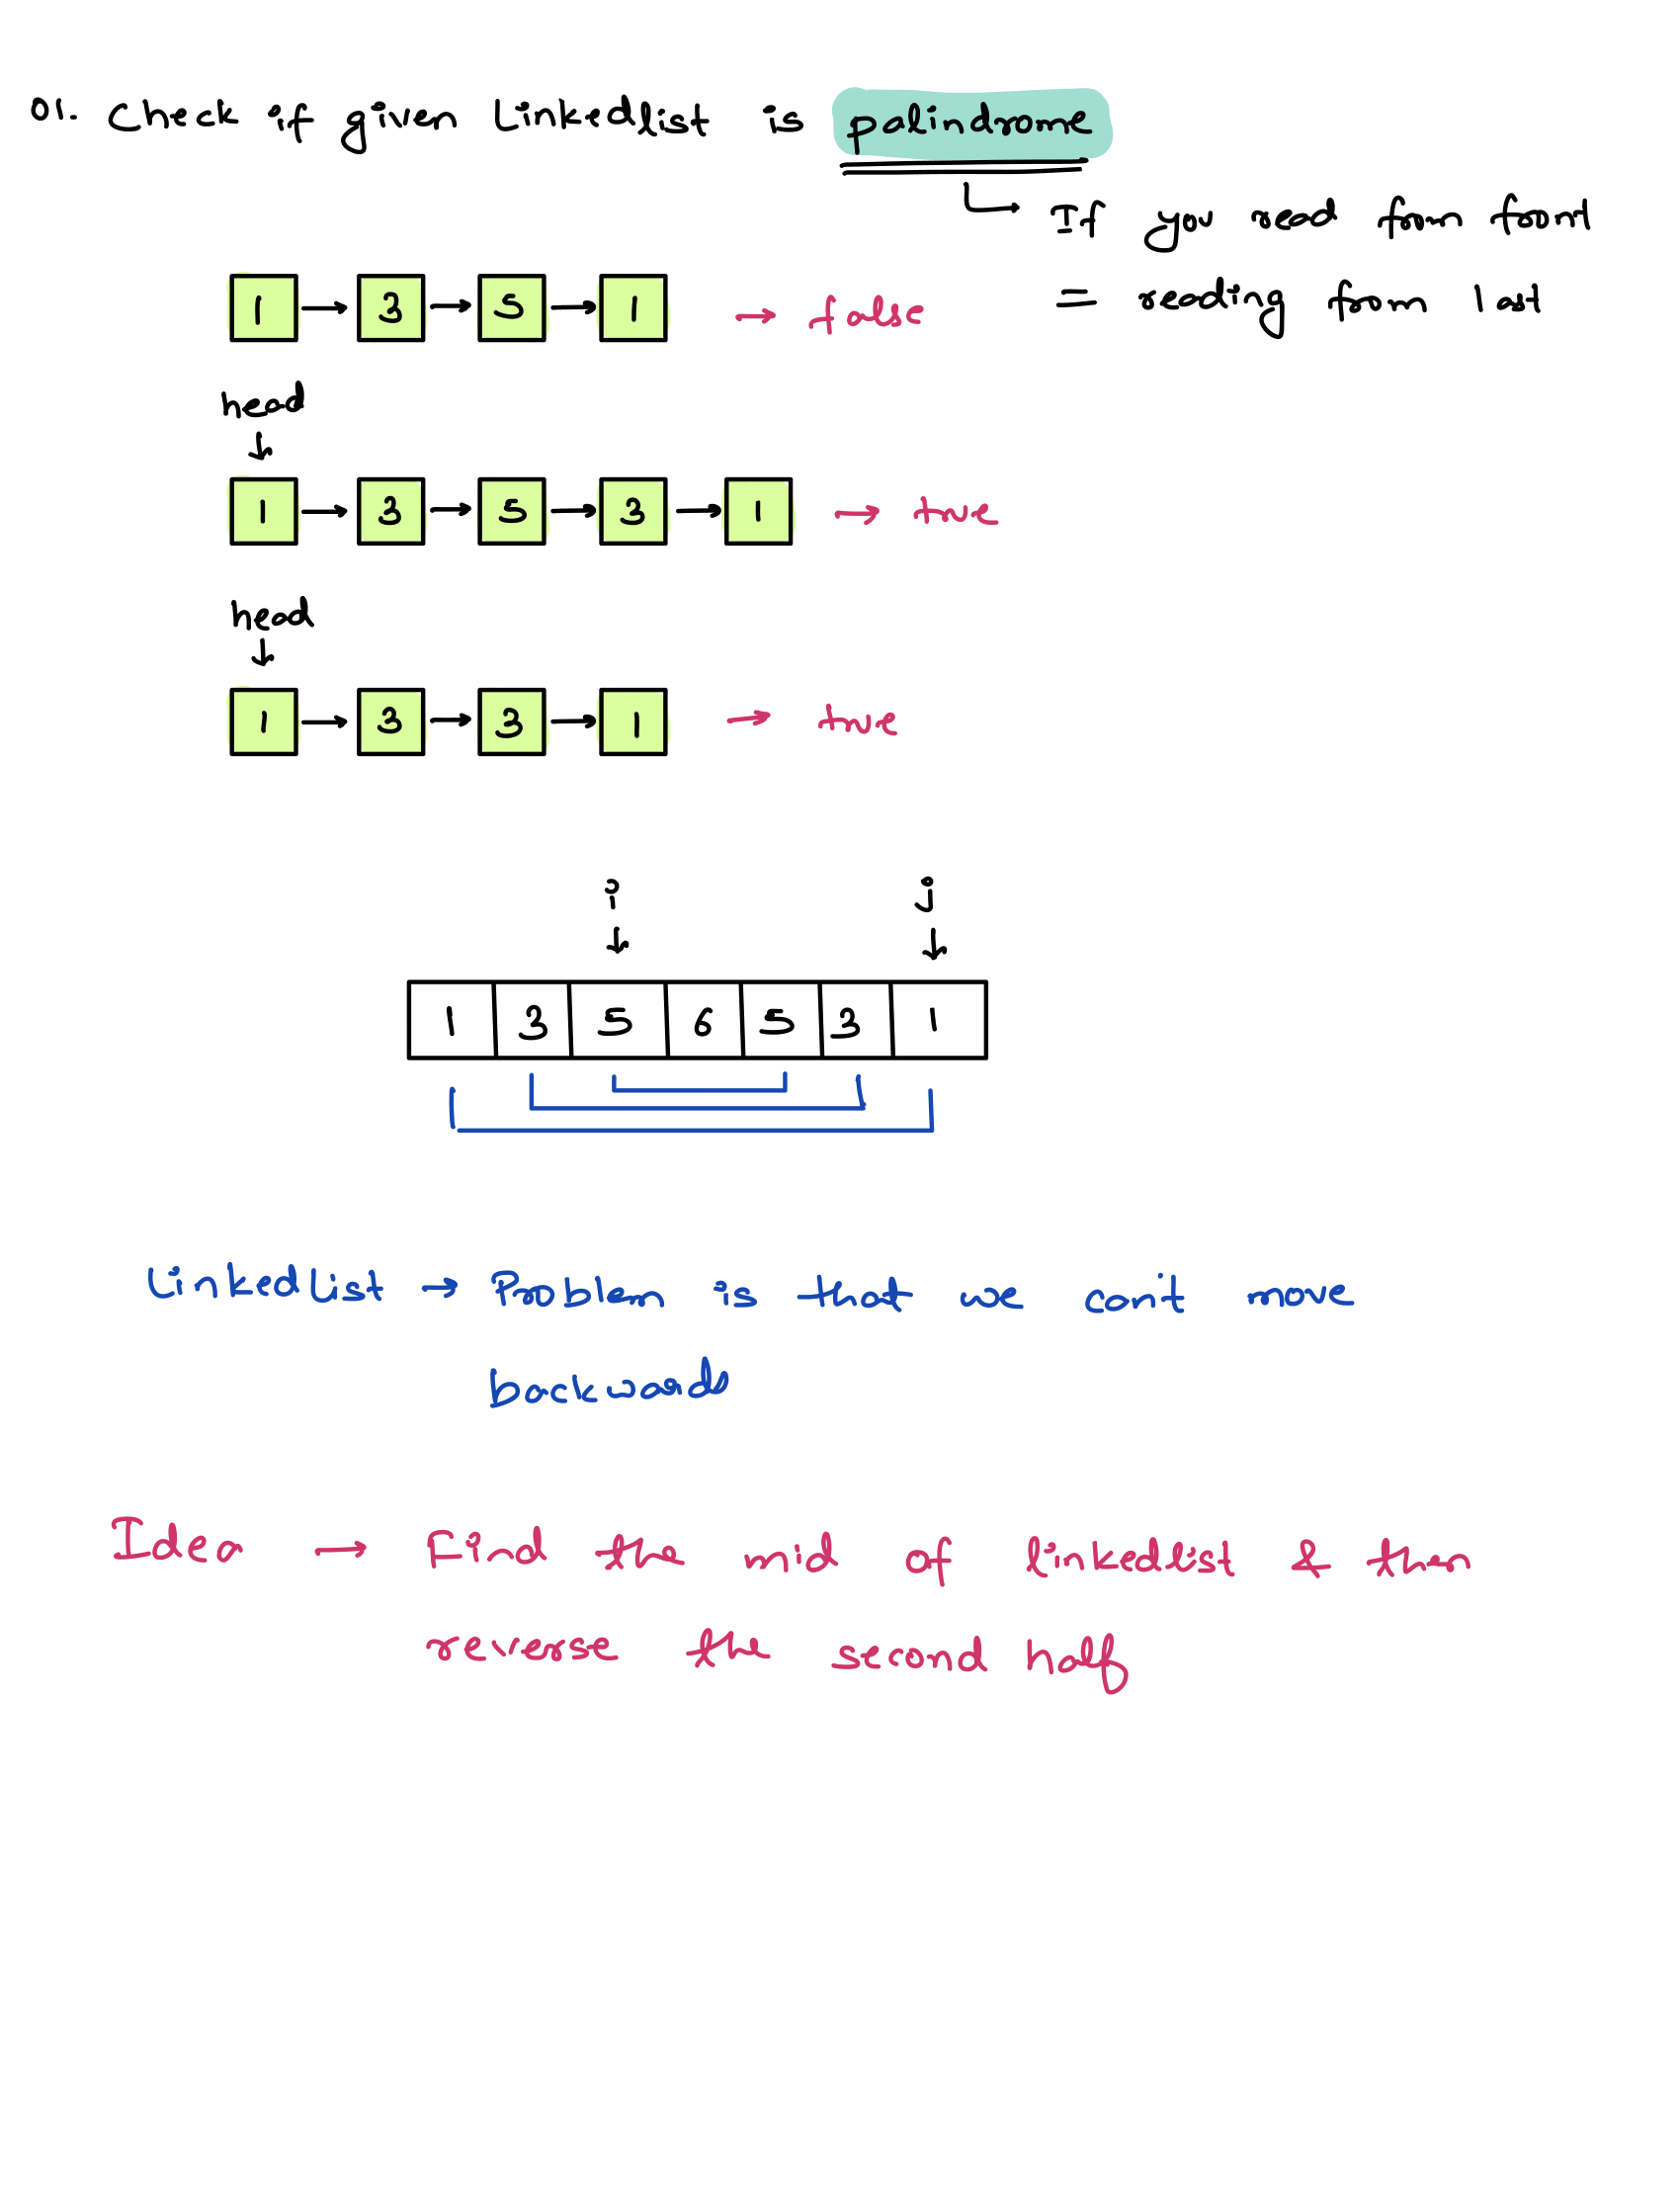 01. Check if given Linkedlist is palindrome
If you read from front
1 3 5 1 → false
= reading from last
head
1 3 5 3 1 → true
head
1 3 3 1 → true
i j
1 3 5 6 5 3 1
Linkedlist → Problem is that we can't move
backwards
Idea → Find the mid of linkedlist & then
reverse the second half